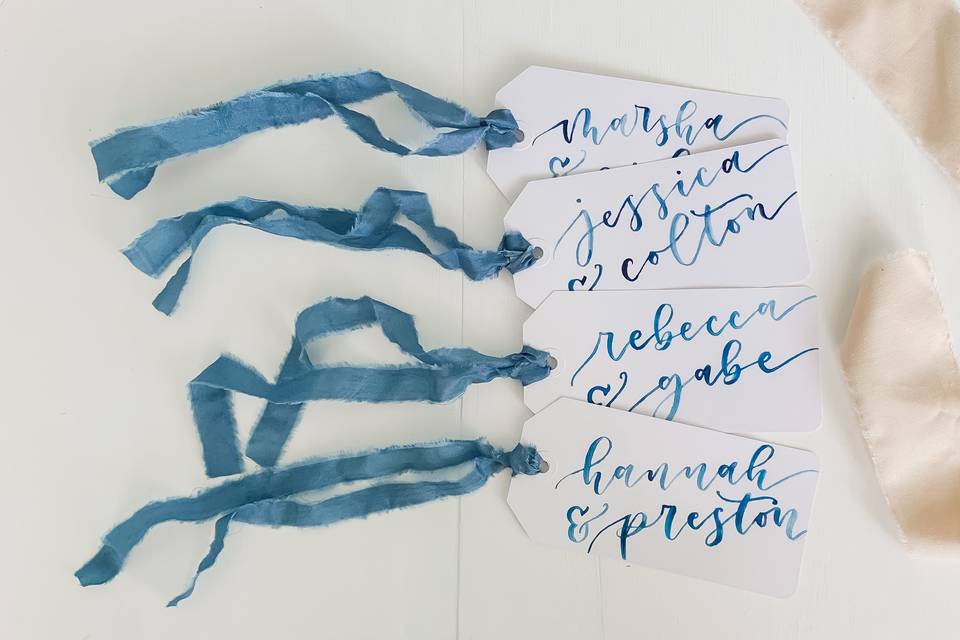 marsha
&
jessica
& colton
rebecca
& gabe
hannah
& preston